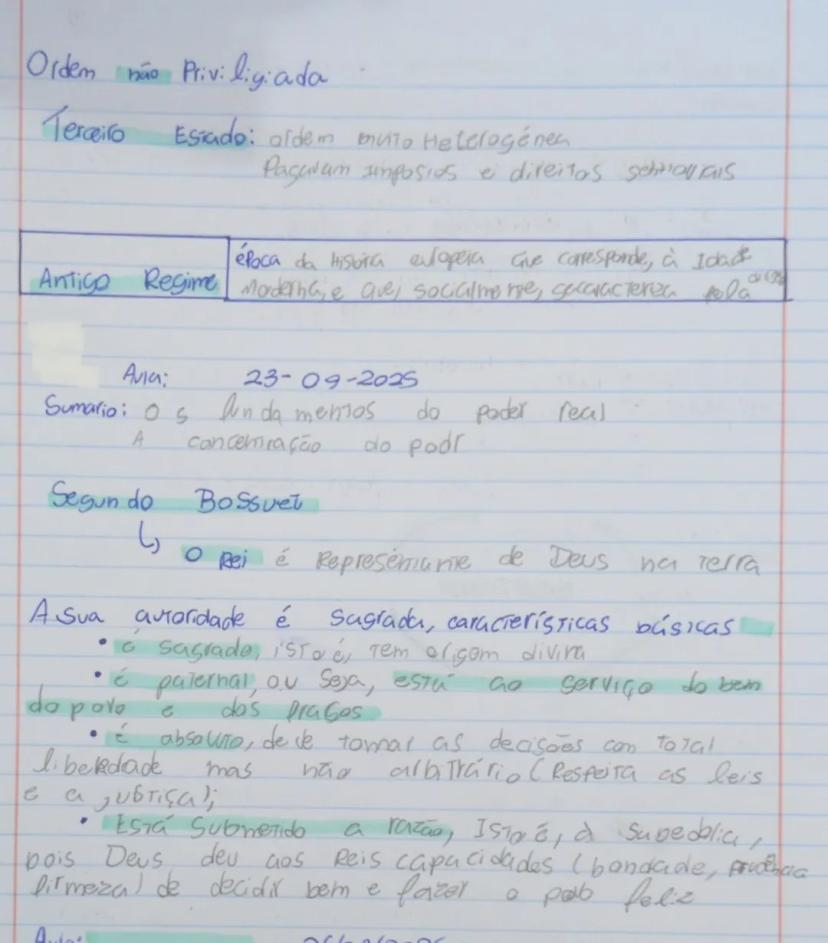 Ordem não Priviligiada
Terceiro Estado: ordem muito Heterogénea
Pagavam impostos e direitos senhoriais
época da história europeia que corresponde, à Idade
Antigo Regime Moderna, e que, socialmente, se caracteriza pela
Aula: 23-09-2025
Sumario: Os fundamentos do poder real
A concentração do podr
Segundo Bossuet
↳ O Rei é Representante de Deus na terra
A sua autoridade é sagrada, características básicas
• é sagrado, isto é, tem origem divina
• é paternal, ou seja, está ao serviço do bem
do povo e dos
• é absoluto, deve tomar as decisões com total
liberdade mas não arbitrário (Respeita as leis
e a justiça);
• Está submetido a razão, Isto é, à
pois Deus deu aos Reis capacidades (bondade, prudência
firmeza) de decidir bem e fazer o povo feliz